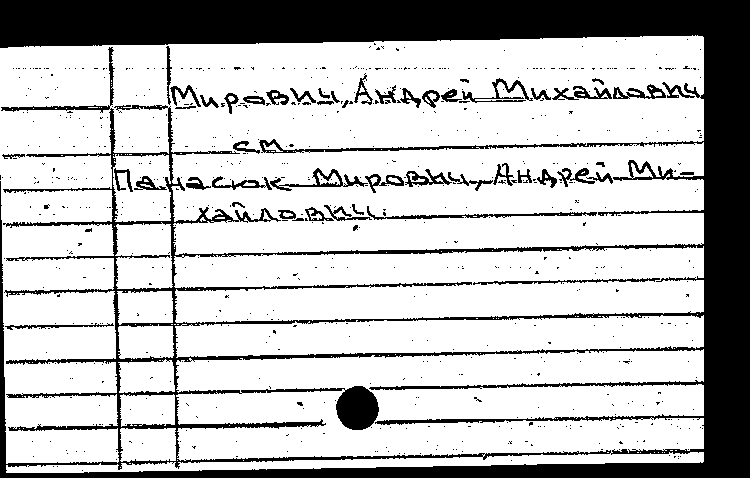 Мирович, Андрей Михайлович
см.
Панасюк Мирович, Андрей Ми-
хайлович.